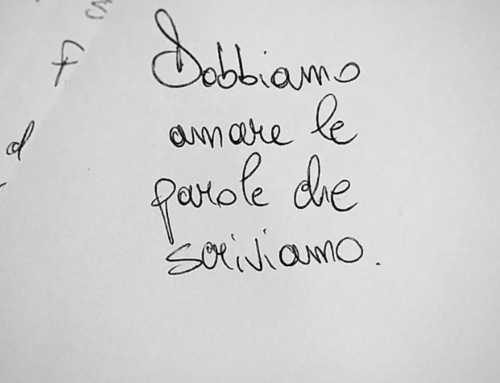 Dobbiamo
amare le
parole che
scriviamo.
d
f